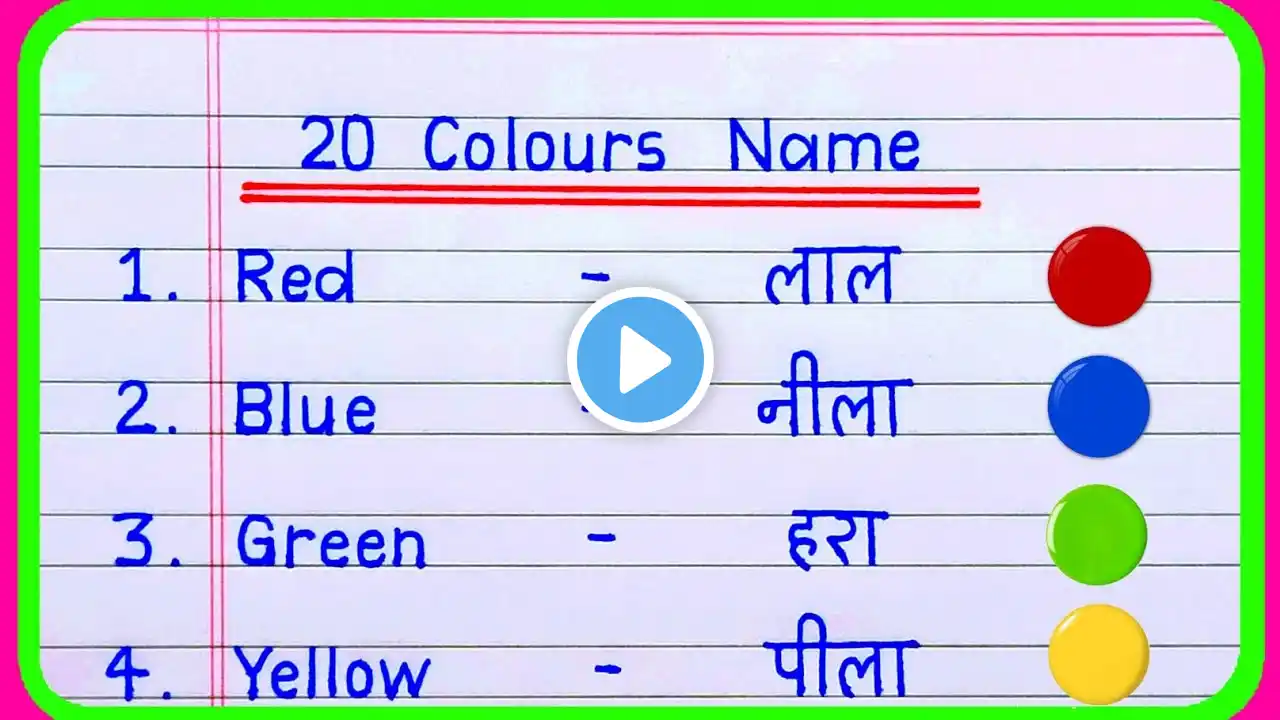 20 Colours Name
1. Red - लाल
2. Blue - नीला
3. Green - हरा
4. Yellow - पीला